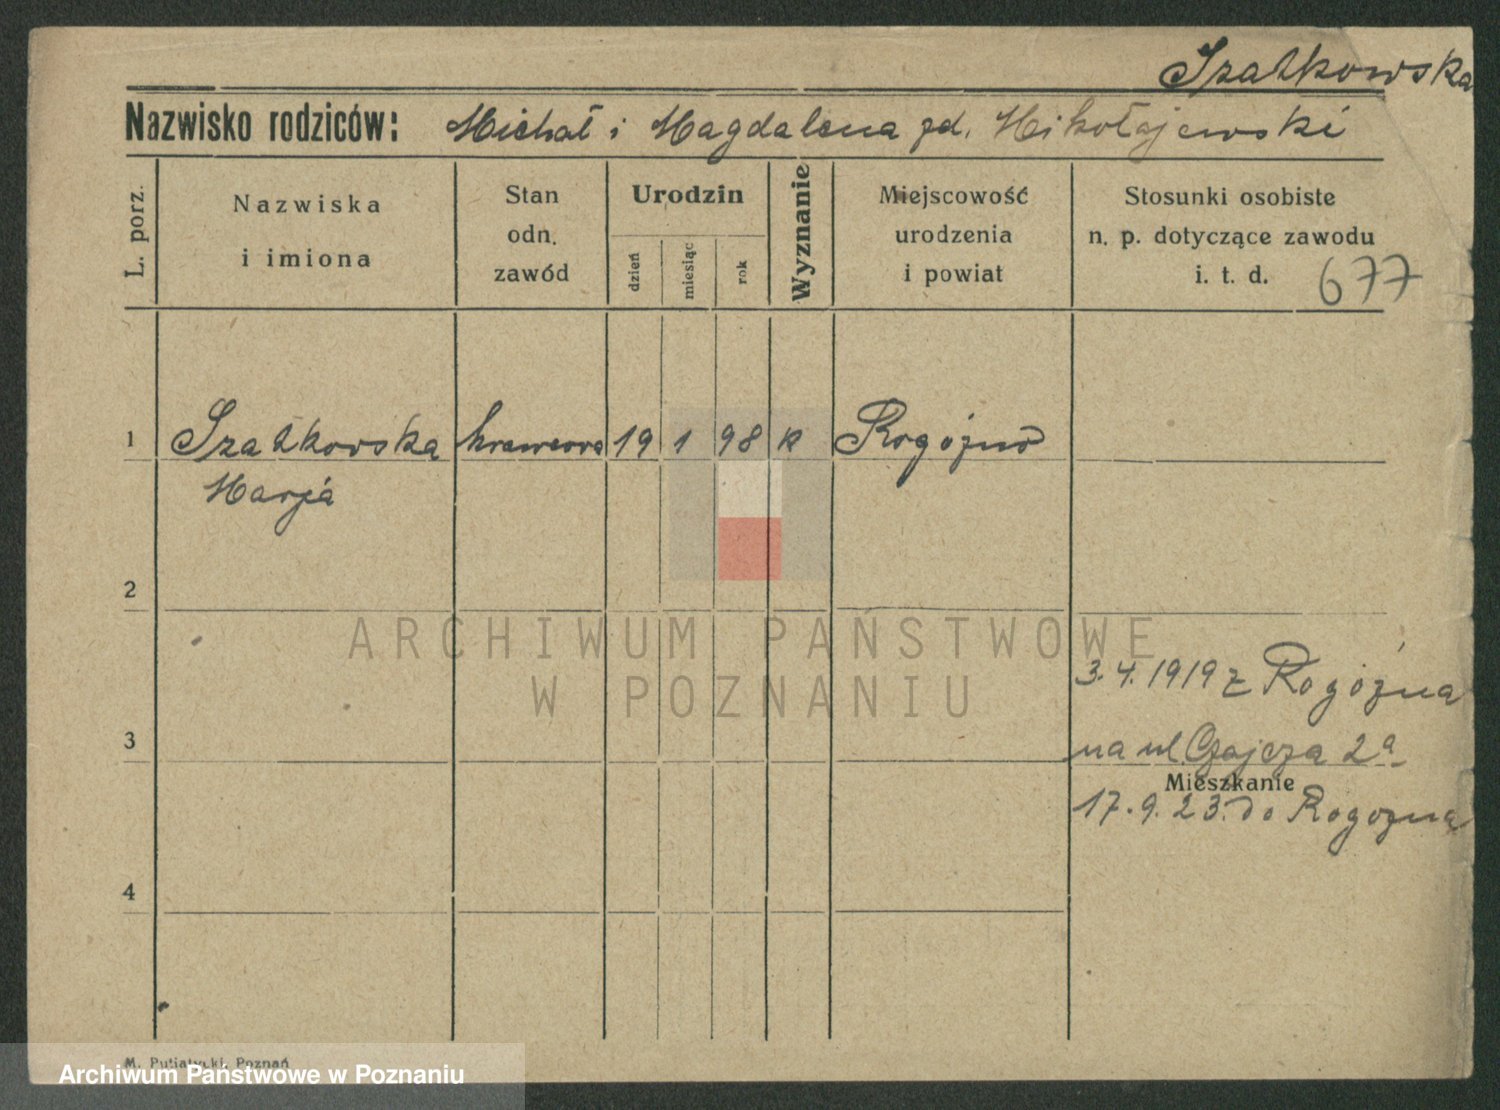 Szałkowska
Nazwisko rodziców: Michał i Magdalena zd. Mikołajewski
L. porz.
Nazwiska
i imiona
Stan
odn.
zawód
Urodzin
dzień
miesiąc
rok
Wyznanie
Miejscowość
urodzenia
i powiat
Stosunki osobiste
n. p. dotyczące zawodu
i. t. d.
677
1 Szałkowska krawcowa 19 1 98 k Rogoźno
Marja
2
ARCHIWUM PAŃSTWOWE
W POZNANIU
3. 4. 1919 z Rogoźna
3
na ul. Czajcza 2a
Mieszkanie
17. 9. 23. do Rogozna
4
M. Putiatycki, Poznań
Archiwum Państwowe w Poznaniu